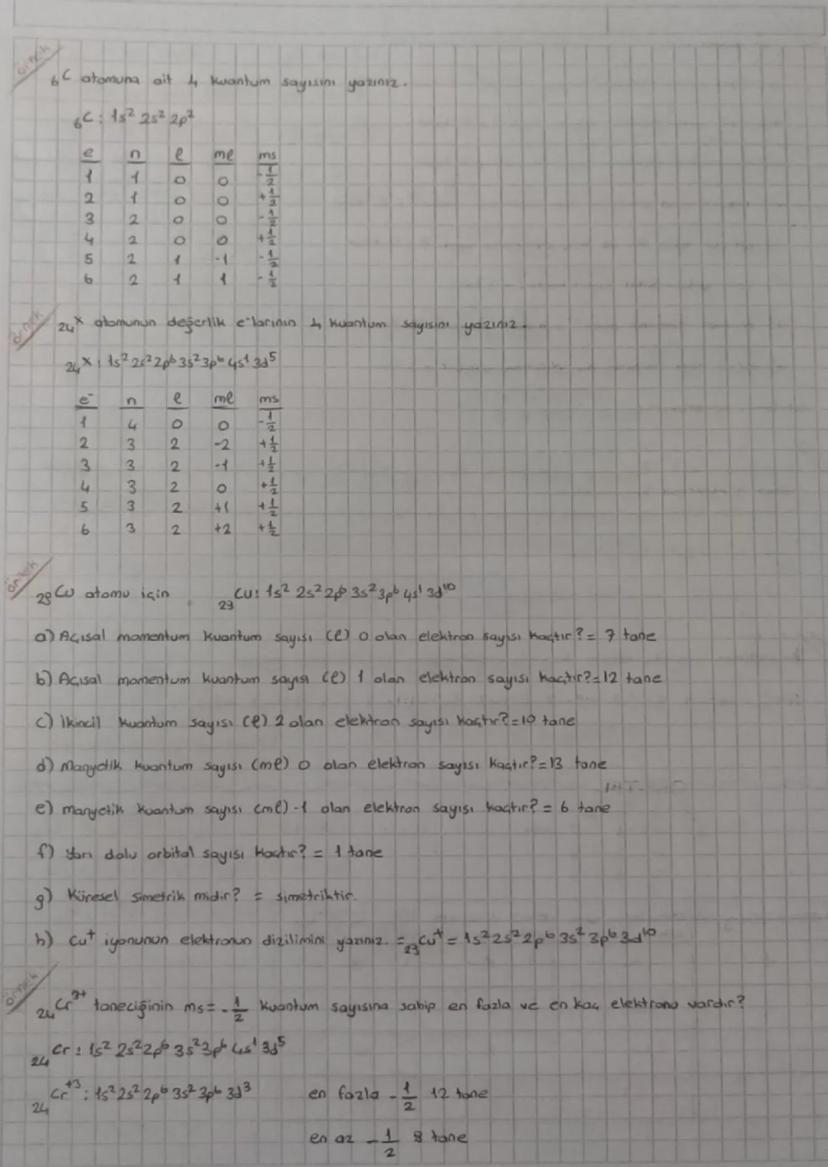 örnek
₆C atomuna ait 4 kuantum sayısını yazınız.
₆C : 1s² 2s² 2p²
e n l ml ms
1 1 0 0 -1/2
2 1 0 0 +1/2
3 2 0 0 -1/2
4 2 0 0 +1/2
5 2 1 -1 -1/2
6 2 1 1 -1/2
örnek
₂₄X atomunun değerlik e⁻larının 4 kuantum sayısını yazınız.
₂₄X : 1s² 2s² 2p⁶ 3s² 3p⁶ 4s¹ 3d⁵
e⁻ n l ml ms
1 4 0 0 -1/2
2 3 2 -2 +1/2
3 3 2 -1 +1/2
4 3 2 0 +1/2
5 3 2 +1 +1/2
6 3 2 +2 +1/2
örnek
₂₉Cu atomu için ₂₉Cu: 1s² 2s² 2p⁶ 3s² 3p⁶ 4s¹ 3d¹⁰
a) Açısal momentum kuantum sayısı (l) 0 olan elektron sayısı kaçtır? = 7 tane
b) Açısal momentum kuantum sayısı (l) 1 olan elektron sayısı kaçtır? = 12 tane
c) İkincil kuantum sayısı (l) 2 olan elektron sayısı kaçtır? = 10 tane
d) Manyetik kuantum sayısı (ml) 0 olan elektron sayısı kaçtır? = 13 tane
e) manyetik kuantum sayısı (ml) -1 olan elektron sayısı kaçtır? = 6 tane
f) Yarı dolu orbital sayısı kaçtır? = 1 tane
g) Küresel simetrik midir? = simetriktir.
h) Cu⁺ iyonunun elektronun dizilimini yazınız. = ₂₉Cu⁺ = 1s² 2s² 2p⁶ 3s² 3p⁶ 3d¹⁰
örnek
₂₄Cr³⁺ taneciğinin ms = -1/2 kuantum sayısına sahip en fazla ve en kaç elektronu vardır?
₂₄Cr : 1s² 2s² 2p⁶ 3s² 3p⁶ 4s¹ 3d⁵
₂₄Cr⁺³ : 1s² 2s² 2p⁶ 3s² 3p⁶ 3d³ en fazla -1/2 12 tane
en az -1/2 9 tane